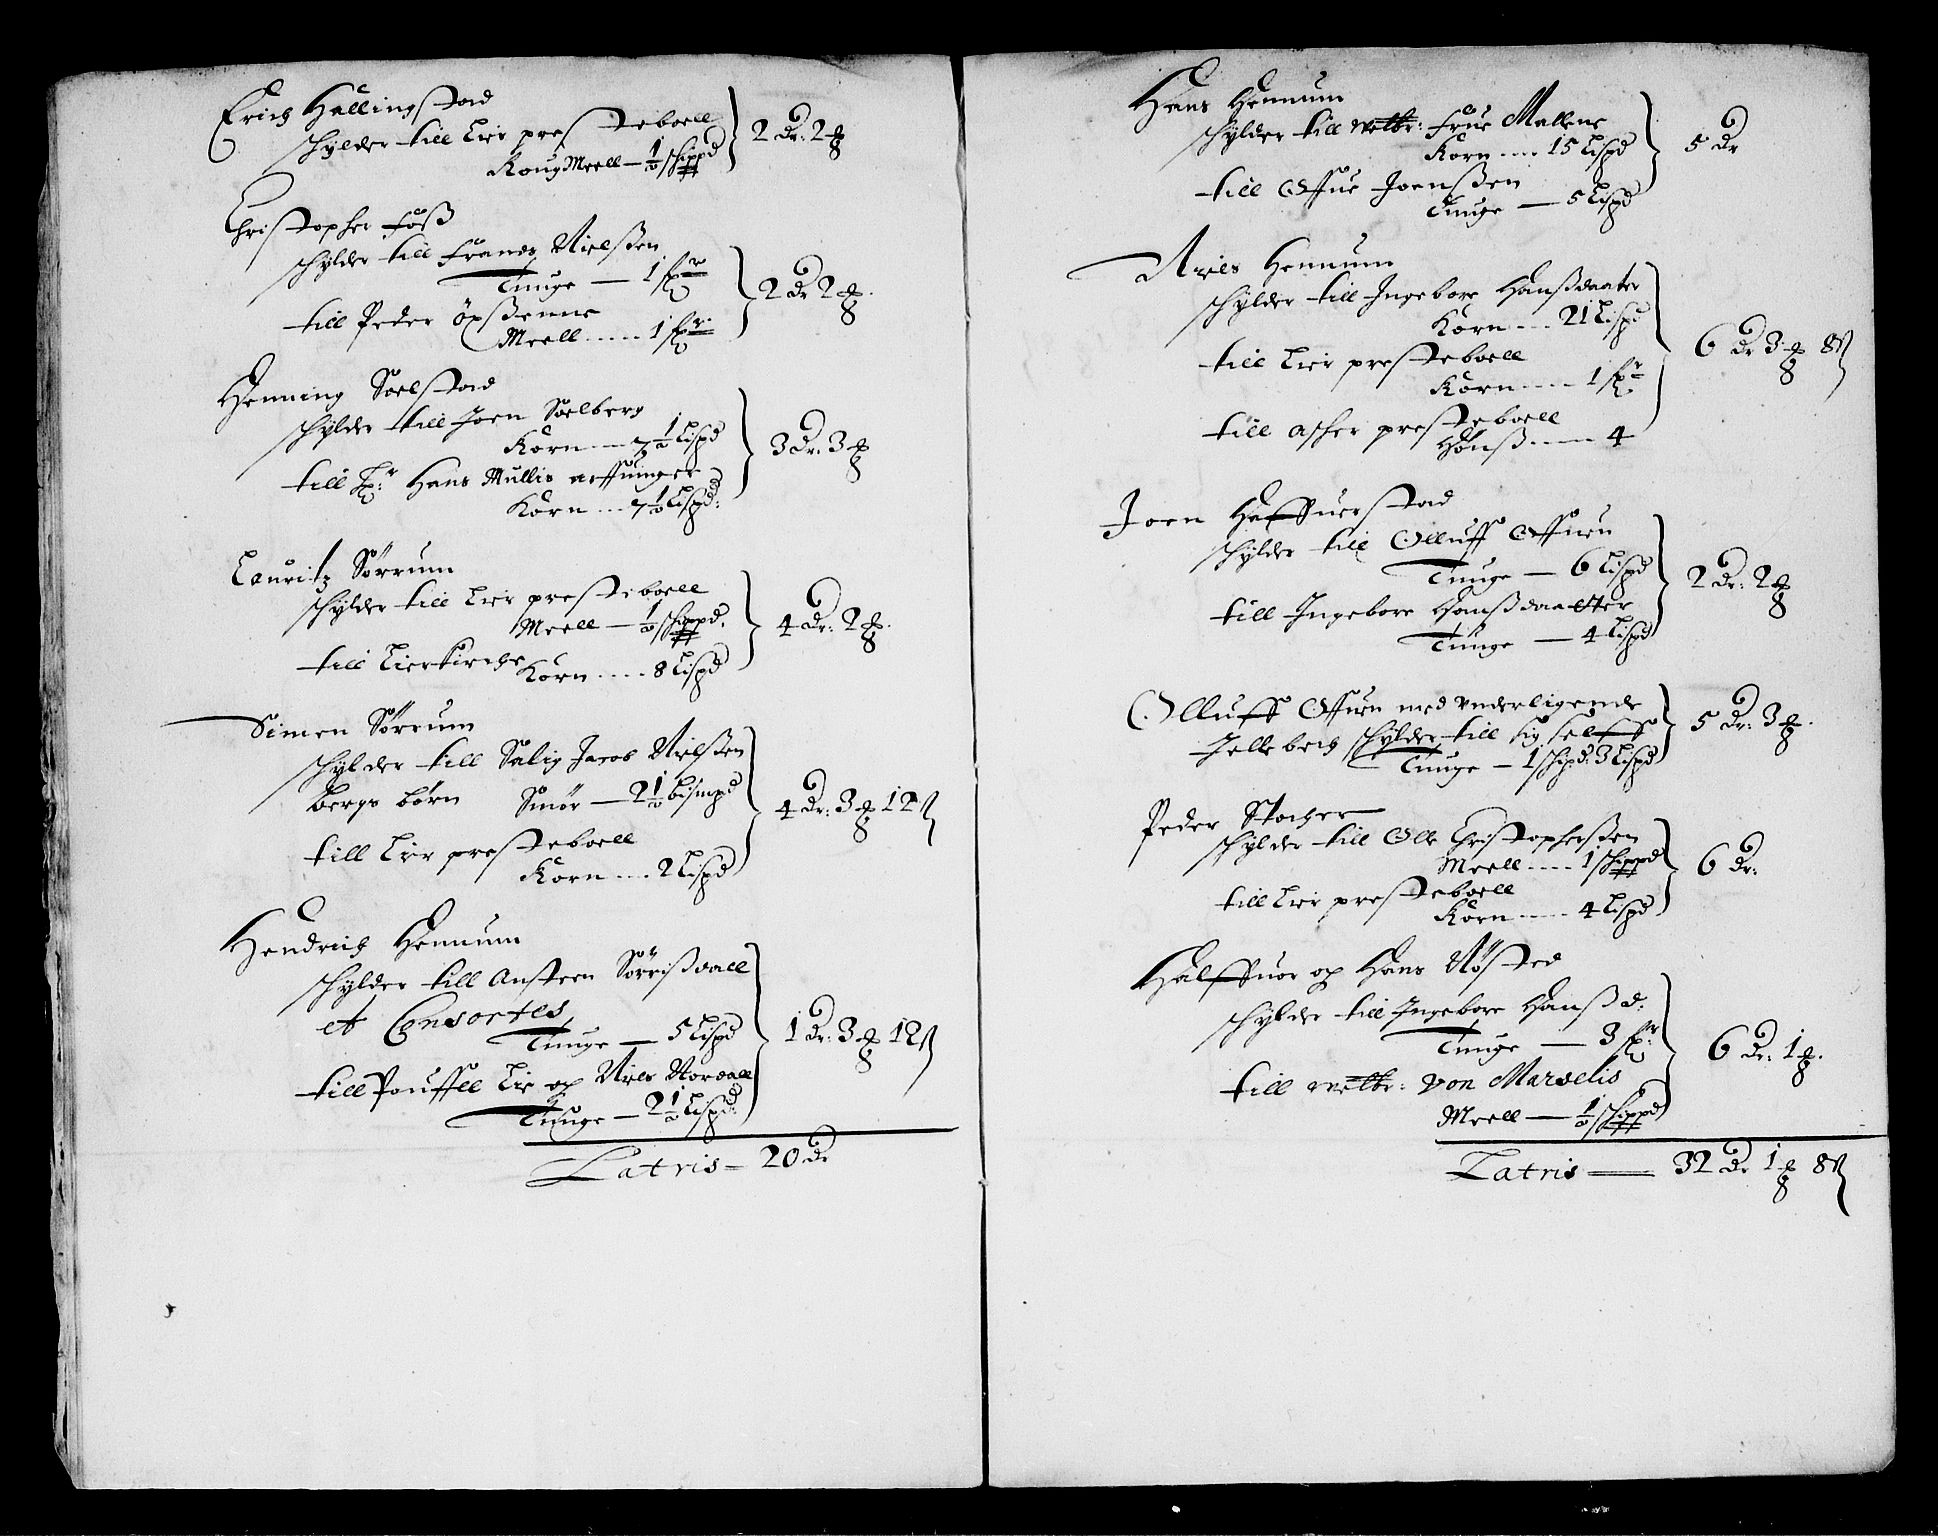 Erich Hallingstad
schylder till Lier presteboell
Roug Meell — ½ schippd
2 dr: 2 ₰
Christopher Foss
schylder till Frandz Nielssen
Tunge — 1 fr
till Peder Öxssenne
Meell ..... 1 fr.
2 dr 2 ₰.
Henning Soelstad
schylder till Joen Soelberg
Korn .... 7½ Lispd
till Hr: Hans Mullis arffuinger
Korn ... 7½ Lispd:
3 dr: 3 ₰
Lauritz Sörrum
schylder till Lier presteboell
Meell — ½ schippd.
till Lierkirche Korn .... 8 Lispd
4 dr: 2 ₰.
Simen Sörrum
schylder till Salig Jacob Nielssen
bergs börn Smör — 2½ bismpd
till Lier presteboell
Korn .... 2 Lispd
4 dr: 3 ₰ 12 ß
Hendrich Hennum
schylder till Ansteen Sörrissdall
et Consortes
Tunge — 5 Lispd
till Pouffell Lie og Niels Nordall
Tunge — 2½ Lispd:
1 dr: 3 ₰ 12 ß
Latris — 20 dr
Hans Hennum
schylder till welbr: frue Mallene
Korn .... 15 Lispd
till Offue Joenssen
Tunge — 5 Lispd
5 dr
Niels Hennum
schylder till Ingebore Hanssdaater
Korn ... 21 Lispd
till Lier presteboell
Korn .... 1 fr.
till Asker presteboell
Hönss .... 4
6 dr 3 ₰ 8 ß
Joen Haffuerstad
schylder till Olluff Offuen
Tunge — 6 Lispd
till Ingebore Hanssdaatter
Tunge — 4 Lispd
2 dr: 2 ₰
Olluff Offuen med underligende
Jellebech schylder till sig selff
Tunge — 1 schipd: 3 Lispd
5 dr: 3 ₰.
Peder Stocher
schylder till Olle Christopherssen
Meell .... 1 schippd
till Lier presteboell
Korn .... 4 Lispd
6 dr:
Halffuor og Hans Nösted
schylder till Ingebore Hanss d:
Tunge — 3 fr:
till welbr: von Marselis
Meell — ½ schippd
6 dr: 1 ₰.
Latris — 32 dr 1 ₰ 8 ß